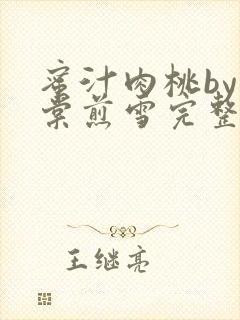 蜜汁肉桃by
棠煎雪完整
王继亮